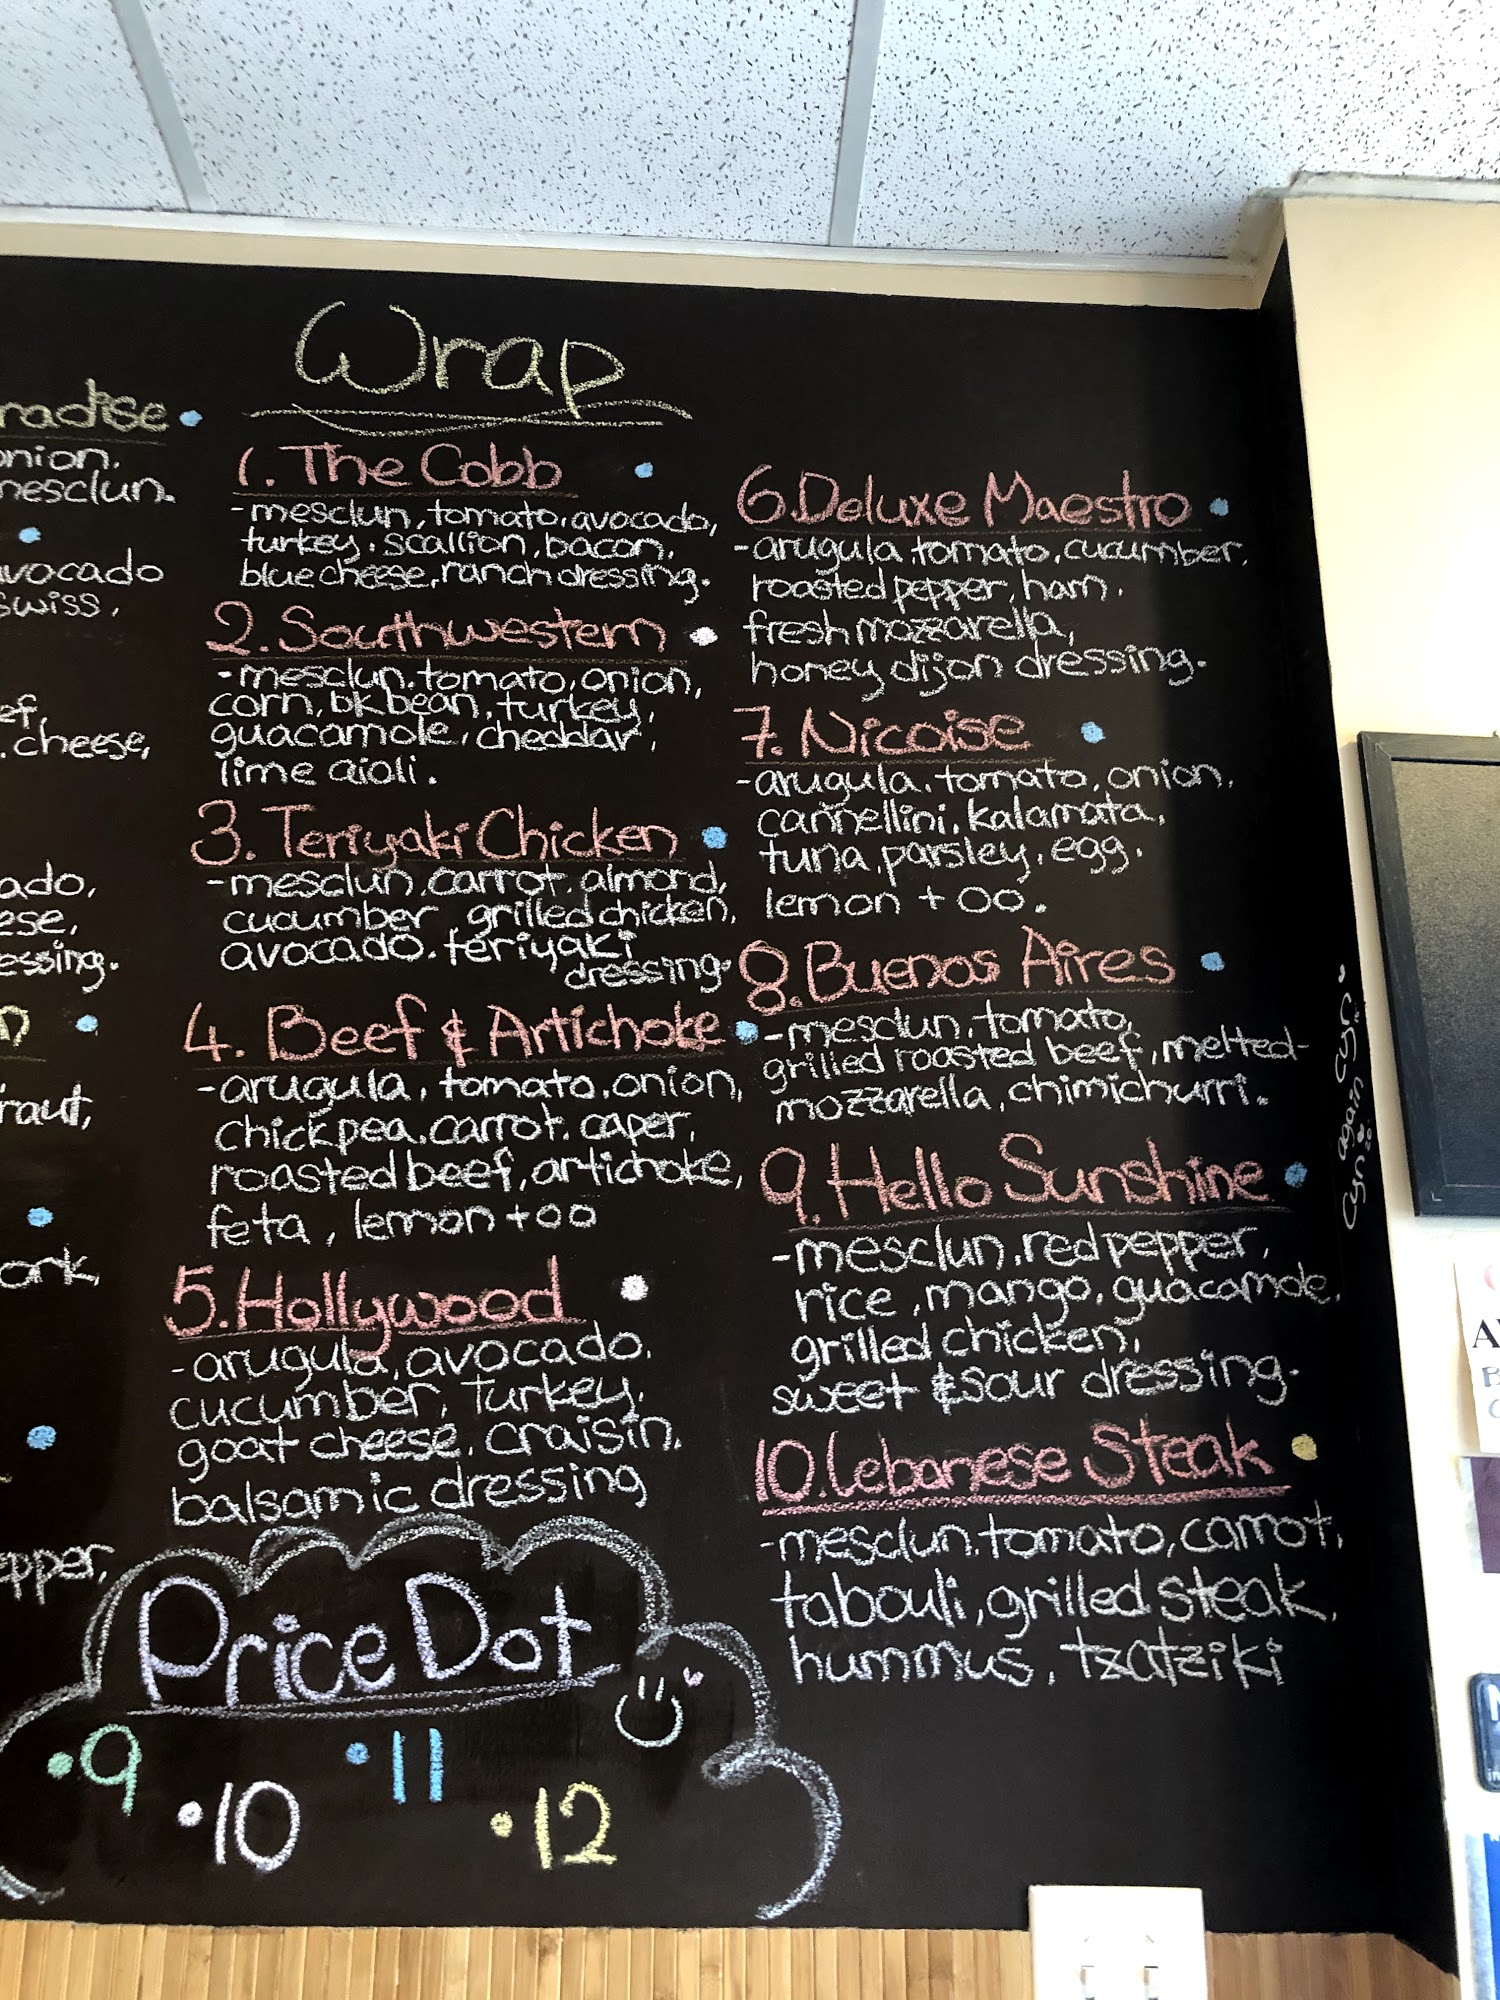 radise
onion.
mesclun.
avocado
swiss,
ef,
. cheese,
ado,
ese,
essing.
n
raut,
ork,
epper,
Wrap
1. The Cobb
-mesclun, tomato, avocado,
turkey, scallion, bacon,
blue cheese, ranch dressing.
2. Southwestern
-mesclun, tomato, onion,
corn, bk bean, turkey,
guacamole, cheddar,
lime aioli.
3. Teriyaki Chicken
-mesclun, carrot, almond,
cucumber grilled chicken,
avocado, teriyaki
dressing.
4. Beef & Artichoke
-arugula, tomato, onion,
chickpea, carrot, caper,
roasted beef, artichoke,
feta, lemon +oo
5. Hollywood
-arugula, avocado,
cucumber, turkey,
goat cheese, craisin,
balsamic dressing
6. Deluxe Maestro
-arugula, tomato, cucumber,
roasted pepper, ham,
fresh mozzarella,
honey dijon dressing.
7. Nicoise
-arugula, tomato, onion,
cannellini, kalamata,
tuna, parsley, egg,
lemon + oo.
8. Buenos Aires
-mesclun, tomato,
grilled roasted beef, melted-
mozzarella, chimichurri.
9. Hello Sunshine
-mesclun, red pepper,
rice, mango, guacamole,
grilled chicken,
sweet & sour dressing.
10. Lebanese Steak
-mesclun, tomato, carrot,
tabouli, grilled steak,
hummus, tzatziki
Price Dot
•9
•10
•11
•12
again